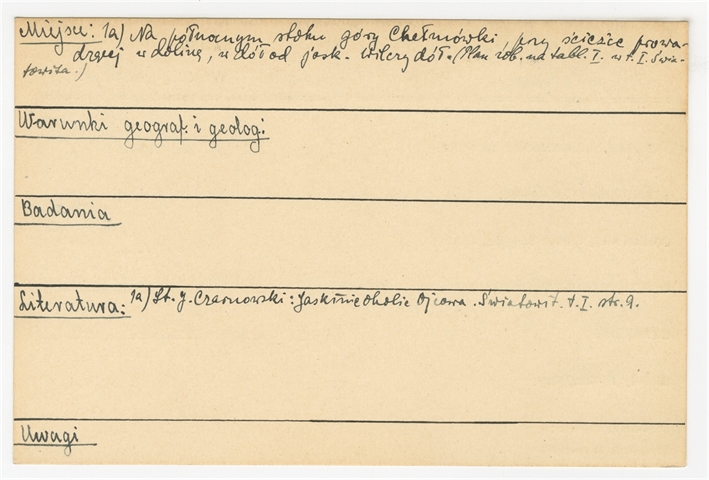 Miejsce: 1a) Na północnym stoku góry Chełmówki, przy ścieżce prowa-
dzącej w dolinę, w dół od jask. Wilczy dół. (Plan zob. na tabl. I. w t. I. Świa-
towita.)
Warunki geograf. i geolog.
Badania
Literatura: 1a) St. J. Czarnowski: Jaskinie okolic Ojcowa. Światowit. t. I. str. 9.
Uwagi